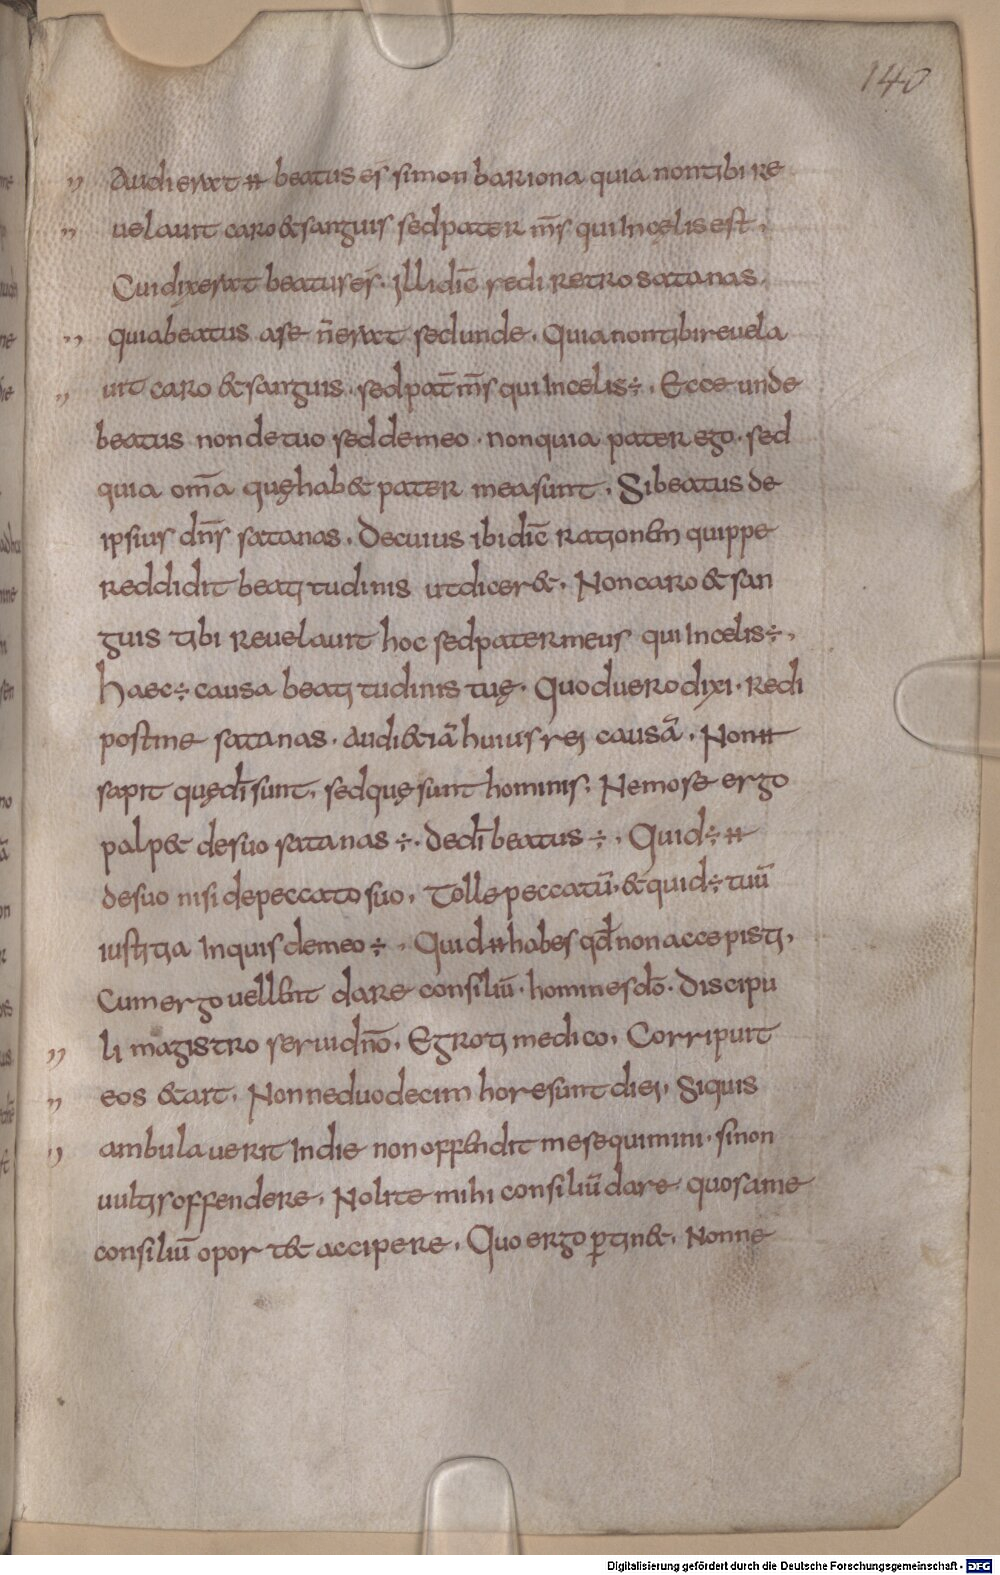 140
„ Audierat ⧺ beatus es simon bariona quia non tibi re
„ uelauit caro & sanguis sed pater m̅s qui In cęlis est .
Cui dixerat beatus es . illi dic̅ redi retro satanas .
„ quia beatus a se n̅ erat sed unde . Quia non tibi reuela
„ uit caro & sanguis . sed pat̅ m̅s qui In celis ÷ . Ecce unde
beatus non de tuo sed de meo . non quia pater ego . sed
quia om̅a quę hab& pater mea sunt . Si beatus de
ipsius dn̅s satanas . De cuius ibi dic̅ rationem quippe
reddidit beatitudinis ut dicer& . Non caro & san
guis tibi reuelauit hoc sed pater meus qui In celis ÷ .
haec ÷ causa beatitudinis tuę . Quod uero dixi . redi
post me satanas . audi &iā huius rei causā . Non ⧺
sapit quę di̅ sunt . sed quę sunt hominis . Nemo se ergo
palp& de suo satanas ÷ . de di̅ beatus ÷ . Quid ÷ ⧺
de suo nisi de peccato suo . Tolle peccatū . & quid ÷ tuū
iustitia Inquis de meo ÷ . Quid ⧺ habes qd̅ non accepisti .
Cum ergo uellent dare consiliū . homines do̅ . Discipu
„ li magistro serui dn̅o . Egroti medico . Corripuit
„ eos & ait . Nonne duodecim hore sunt diei . Si quis
„ ambulauerit In die non offendit me sequimini . si non
uultis offendere . Nolite mihi consiliū dare quos a me
consiliū oport& accipere . Quo ergo p̱tin& . Nonne
Digitalisierung gefördert durch die Deutsche Forschungsgemeinschaft - DFG